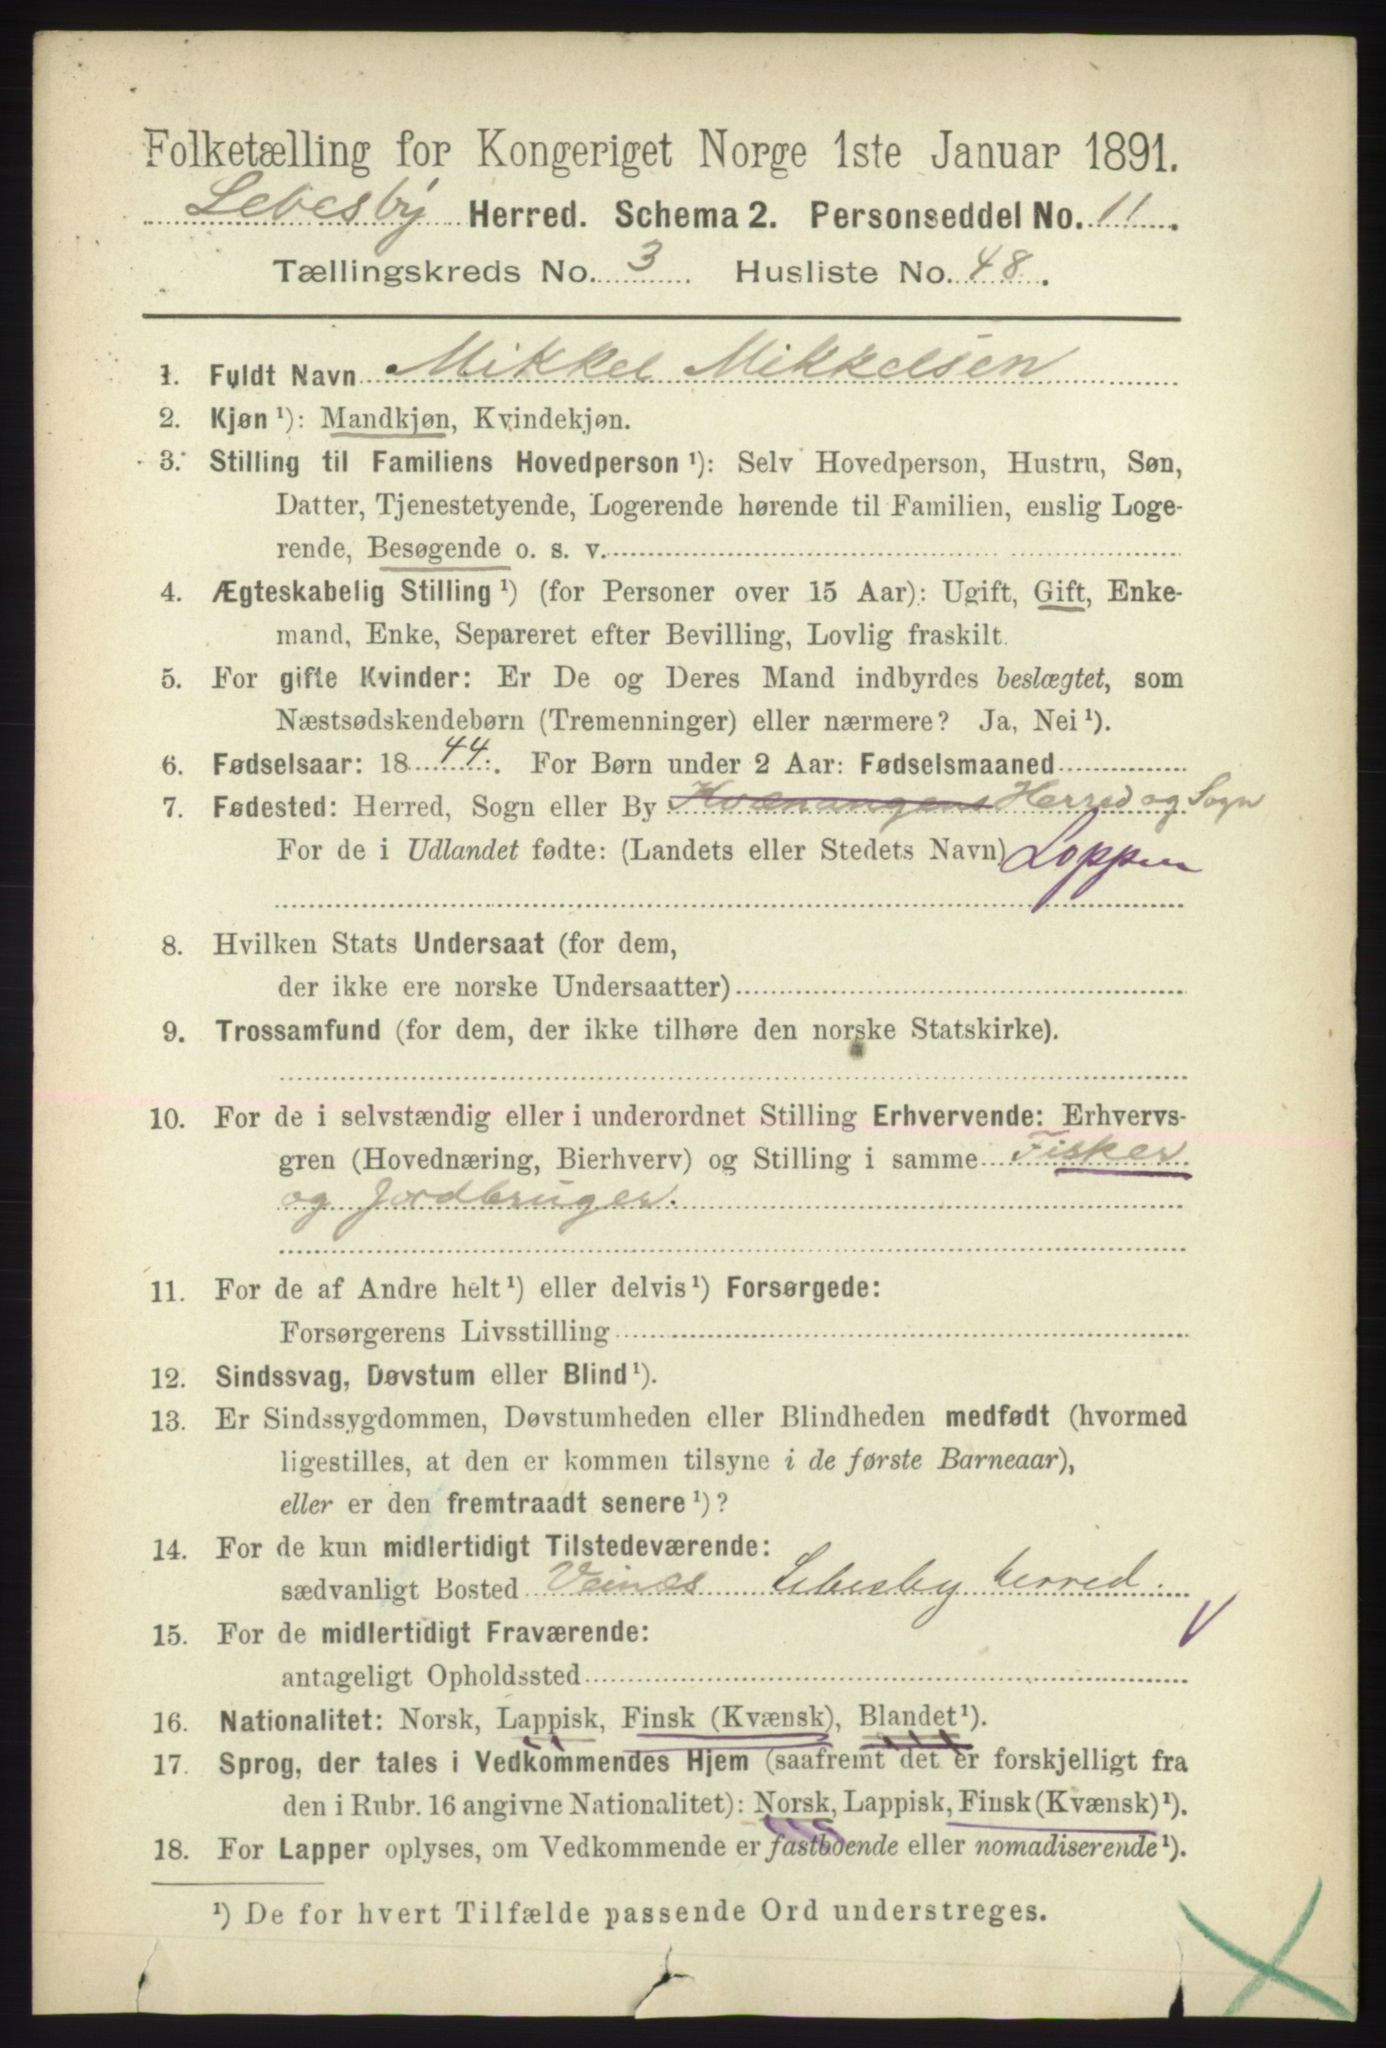 Folketælling for Kongeriget Norge 1ste Januar 1891.
Lebesby Herred. Schema 2. Personseddel No. 11.
Tællingskreds No. 3 Husliste No. 48.
1. Fuldt Navn Mikkel Mikkelsen
2. Kjøn ¹): Mandkjøn, Kvindekjøn.
3. Stilling til Familiens Hovedperson ¹): Selv Hovedperson, Hustru, Søn,
Datter, Tjenestetyende, Logerende hørende til Familien, enslig Loge-
rende, Besøgende o. s. v.
4. Ægteskabelig Stilling ¹) (for Personer over 15 Aar): Ugift, Gift, Enke-
mand, Enke, Separeret efter Bevilling, Lovlig fraskilt.
5. For gifte Kvinder: Er De og Deres Mand indbyrdes beslægtet, som
Næstsødskendebørn (Tremenninger) eller nærmere? Ja, Nei ¹).
6. Fødselsaar: 1844. For Børn under 2 Aar: Fødselsmaaned
7. Fødested: Herred, Sogn eller By Kvænangens Herred og Sogn
For de i Udlandet fødte: (Landets eller Stedets Navn) Loppen
8. Hvilken Stats Undersaat (for dem,
der ikke ere norske Undersaatter)
9. Trossamfund (for dem, der ikke tilhøre den norske Statskirke).
10. For de i selvstændig eller i underordnet Stilling Erhvervende: Erhvervs-
gren (Hovednæring, Bierhverv) og Stilling i samme Fisker
og Jordbruger.
11. For de af Andre helt ¹) eller delvis ¹) Forsørgede:
Forsørgerens Livsstilling
12. Sindssvag, Døvstum eller Blind ¹).
13. Er Sindssygdommen, Døvstumheden eller Blindheden medfødt (hvormed
ligestilles, at den er kommen tilsyne i de første Barneaar),
eller er den fremtraadt senere ¹)?
14. For de kun midlertidigt Tilstedeværende:
sædvanligt Bosted Veines Lebesby herred.
15. For de midlertidigt Fraværende:
antageligt Opholdssted
16. Nationalitet: Norsk, Lappisk, Finsk (Kvænsk), Blandet ¹).
17. Sprog, der tales i Vedkommendes Hjem (saafremt det er forskjelligt fra
den i Rubr. 16 angivne Nationalitet): Norsk, Lappisk, Finsk (Kvænsk) ¹).
18. For Lapper oplyses, om Vedkommende er fastboende eller nomadiserende ¹).
¹) De for hvert Tilfælde passende Ord understreges.